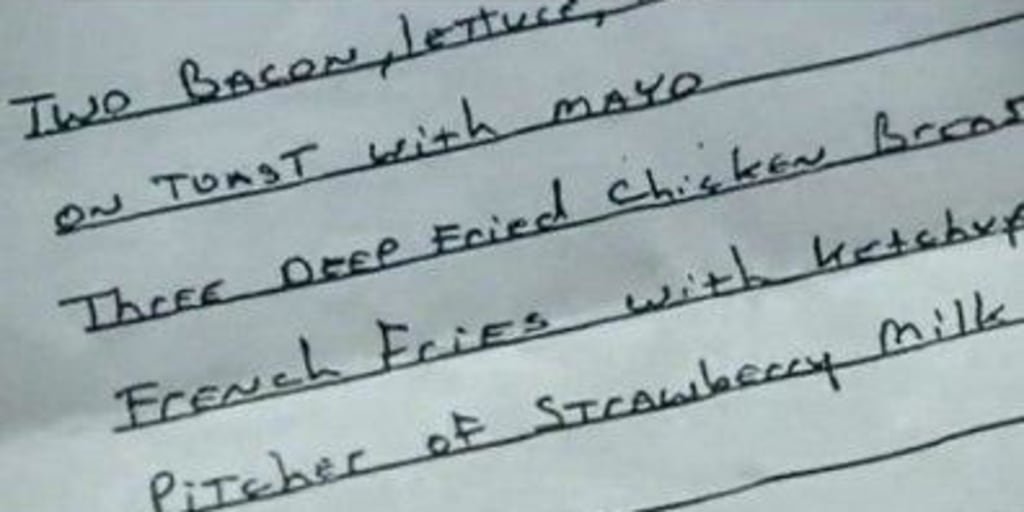 Two Bacon, lettuce,
on Toast with mayo
Three Deep Fried Chicken
French Fries with ketchup
Pitcher of Strawberry milk